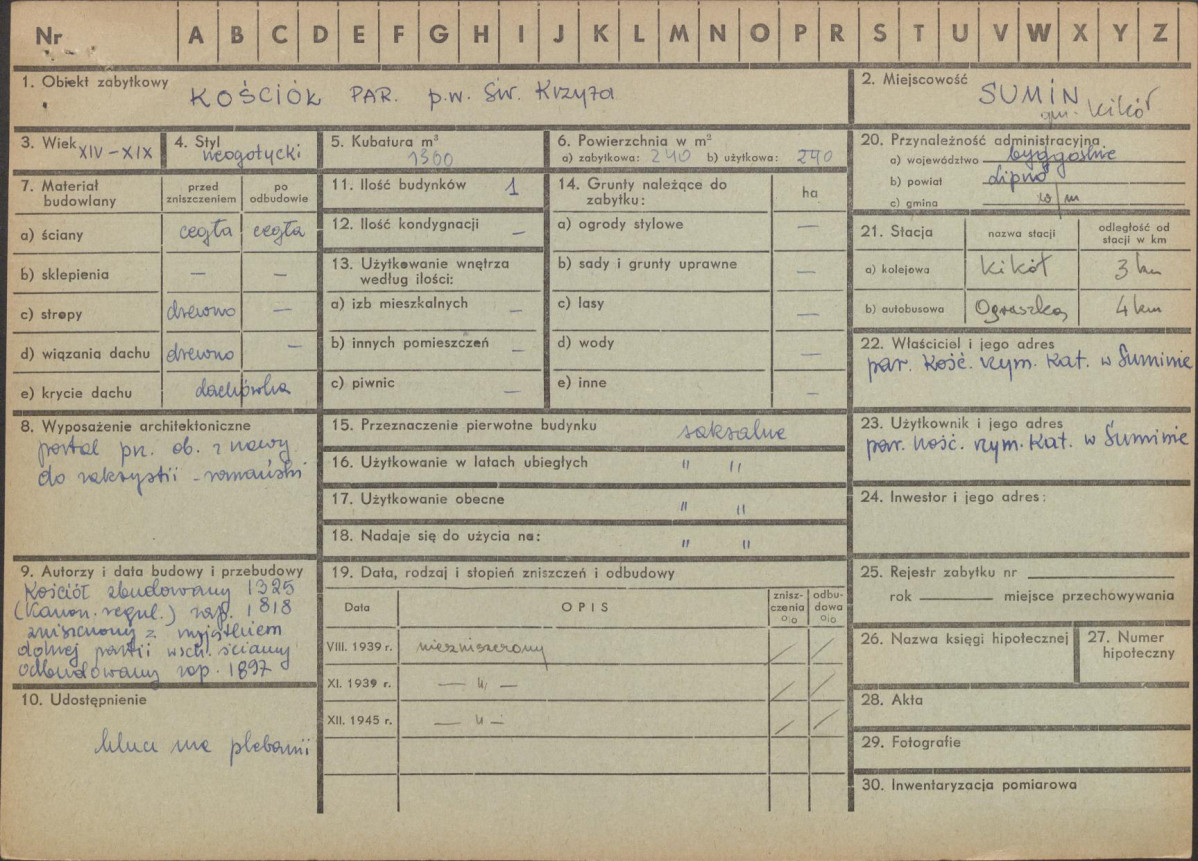 Nr A B C D E F G H I J K L M N O P R S T U V W X Y Z
1. Obiekt zabytkowy KOŚCIÓŁ PAR. p.w. Św. Krzyża
2. Miejscowość SUMIN
gm. Kikół
3. Wiek XIV-XIX
4. Styl neogotycki
5. Kubatura m³
1300
6. Powierzchnia w m²
a) zabytkowa: 240 b) użytkowa: 240
20. Przynależność administracyjna
a) województwo bydgoskie
b) powiat Lipno
c) gmina w/m
7. Materiał budowlany
przed zniszczeniem
po odbudowie
a) ściany cegła cegła
b) sklepienia — —
c) stropy drewno —
d) wiązania dachu drewno —
e) krycie dachu dachówka
11. Ilość budynków 1
12. Ilość kondygnacji —
13. Użytkowanie wnętrza
według ilości:
a) izb mieszkalnych —
b) innych pomieszczeń —
c) piwnic —
14. Grunty należące do
zabytku:
ha
a) ogrody stylowe —
b) sady i grunty uprawne —
c) lasy —
d) wody —
e) inne —
21. Stacja
nazwa stacji
odległość od
stacji w km
a) kolejowa Kikół 3 km
b) autobusowa 4 km
22. Właściciel i jego adres
par. Kość. rzym. Kat. w Suminie
8. Wyposażenie architektoniczne
portal pn. ob. z nawy
do zakrystii - romański
15. Przeznaczenie pierwotne budynku sakralne
16. Użytkowanie w latach ubiegłych " "
17. Użytkowanie obecne " "
18. Nadaje się do użycia na: " "
23. Użytkownik i jego adres
par. Kość. rzym. Kat. w Suminie
24. Inwestor i jego adres:
9. Autorzy i data budowy i przebudowy
Kościół zbudowany 1325
(Kanon. regul.) 1818
zniszczony z wyjątkiem
dolnej partii wsch. ściany
odbudowany 1897
19. Data, rodzaj i stopień zniszczeń i odbudowy
Data
OPIS
znisz-
czenia
%
odbu-
dowa
%
VIII. 1939 r. niezniszczony / /
XI. 1939 r. — " — / /
XII. 1945 r. — " — / /
25. Rejestr zabytku nr
rok miejsce przechowywania
26. Nazwa księgi hipotecznej
27. Numer
hipoteczny
10. Udostępnienie
klucz na plebanii
28. Akta
29. Fotografie
30. Inwentaryzacja pomiarowa